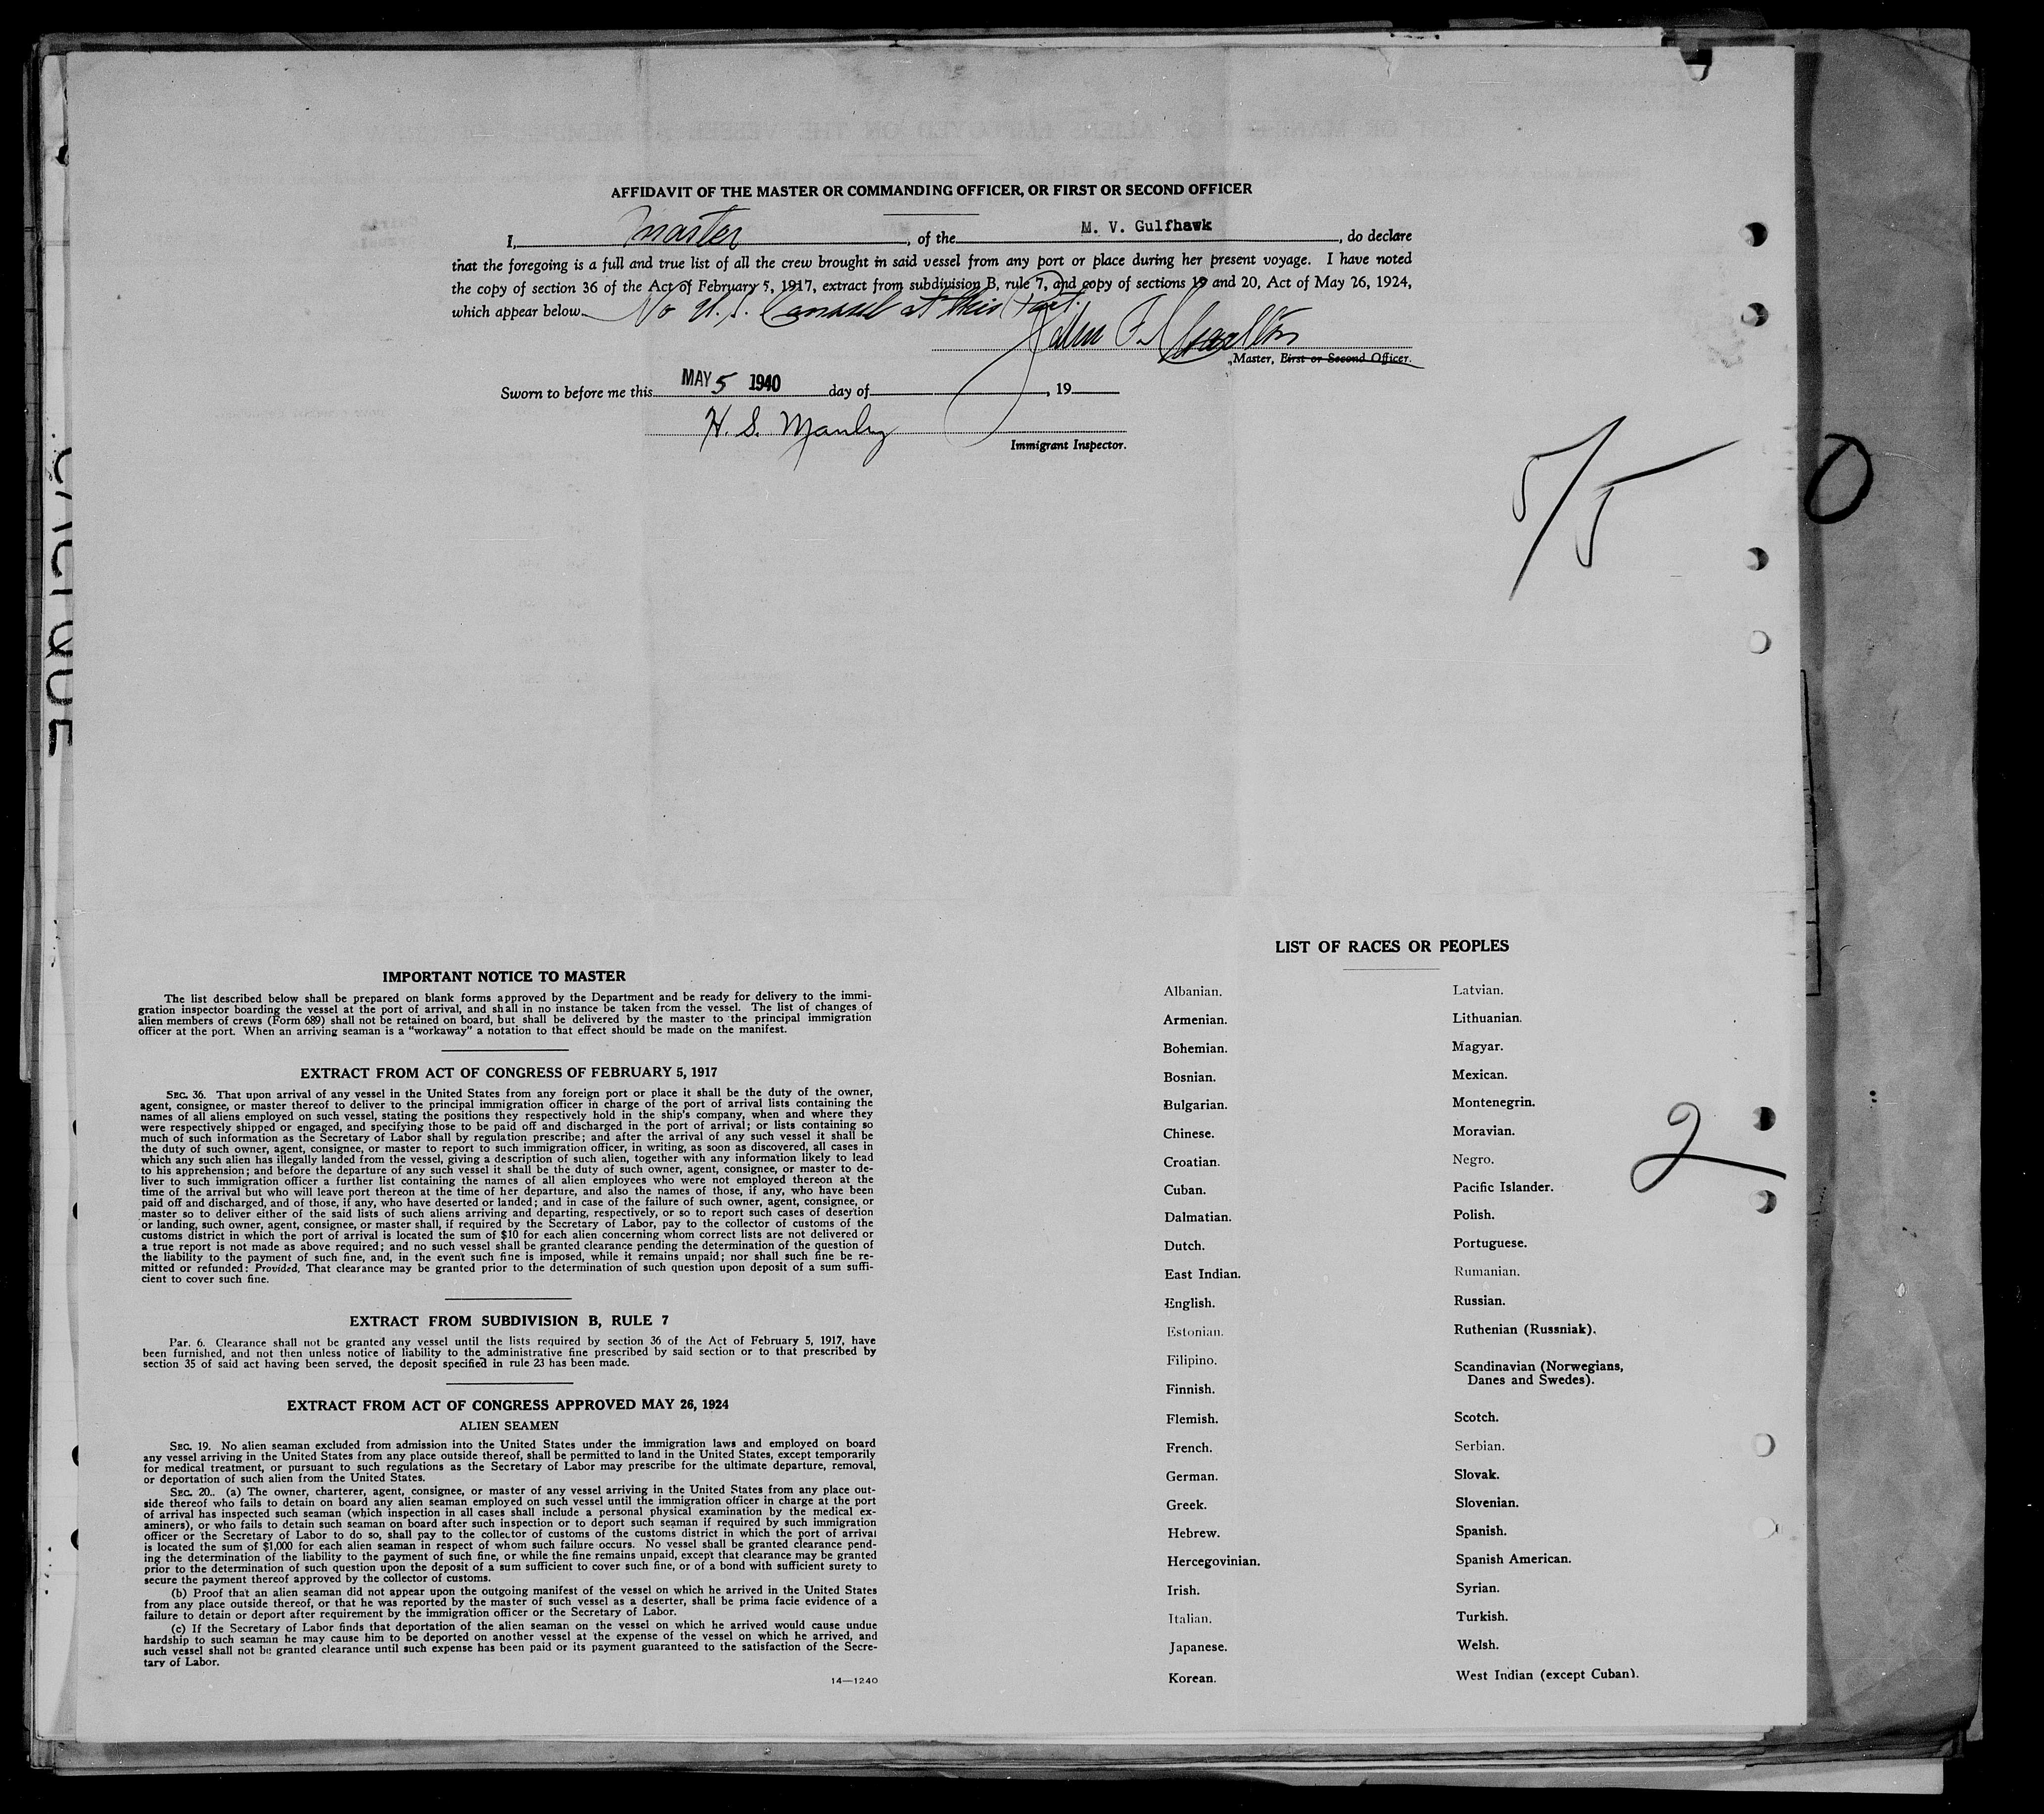 AFFIDAVIT OF THE MASTER OR COMMANDING OFFICER, OR FIRST OR SECOND OFFICER
I, Master, of the M. V. Gulfhawk, do declare
that the foregoing is a full and true list of all the crew brought in said vessel from any port or place during her present voyage. I have noted
the copy of section 36 of the Act of February 5, 1917, extract from subdivision B, rule 7, and copy of sections 19 and 20, Act of May 26, 1924,
which appear below. No U.S. Consul at this Port.
John F. Charlton
Master, First or Second Officer.
Sworn to before me this MAY 5 1940 day of , 19
H. S. Manley
Immigrant Inspector.
5/5
0
IMPORTANT NOTICE TO MASTER
The list described below shall be prepared on blank forms approved by the Department and be ready for delivery to the immi-
gration inspector boarding the vessel at the port of arrival, and shall in no instance be taken from the vessel. The list of changes of
alien members of crews (Form 689) shall not be retained on board, but shall be delivered by the master to the principal immigration
officer at the port. When an arriving seaman is a "workaway" a notation to that effect should be made on the manifest.
EXTRACT FROM ACT OF CONGRESS OF FEBRUARY 5, 1917
SEC. 36. That upon arrival of any vessel in the United States from any foreign port or place it shall be the duty of the owner,
agent, consignee, or master thereof to deliver to the principal immigration officer in charge of the port of arrival lists containing the
names of all aliens employed on such vessel, stating the positions they respectively hold in the ship's company, when and where they
were respectively shipped or engaged, and specifying those to be paid off and discharged in the port of arrival; or lists containing so
much of such information as the Secretary of Labor shall by regulation prescribe; and after the arrival of any such vessel it shall be
the duty of such owner, agent, consignee, or master to report to such immigration officer, in writing, as soon as discovered, all cases in
which any such alien has illegally landed from the vessel, giving a description of such alien, together with any information likely to lead
to his apprehension; and before the departure of any such vessel it shall be the duty of such owner, agent, consignee, or master to de-
liver to such immigration officer a further list containing the names of all alien employees who were not employed thereon at the
time of the arrival but who will leave port thereon at the time of her departure, and also the names of those, if any, who have been
paid off and discharged, and of those, if any, who have deserted or landed; and in case of the failure of such owner, agent, consignee, or
master so to deliver either of the said lists of such aliens arriving and departing, respectively, or so to report such cases of desertion
or landing, such owner, agent, consignee, or master shall, if required by the Secretary of Labor, pay to the collector of customs of the
customs district in which the port of arrival is located the sum of $10 for each alien concerning whom correct lists are not delivered or
a true report is not made as above required; and no such vessel shall be granted clearance pending the determination of the question of
the liability to the payment of such fine, and, in the event such fine is imposed, while it remains unpaid; nor shall such fine be re-
mitted or refunded: Provided, That clearance may be granted prior to the determination of such question upon deposit of a sum suffi-
cient to cover such fine.
EXTRACT FROM SUBDIVISION B, RULE 7
Par. 6. Clearance shall not be granted any vessel until the lists required by section 36 of the Act of February 5, 1917, have
been furnished, and not then unless notice of liability to the administrative fine prescribed by said section or to that prescribed by
section 35 of said act having been served, the deposit specified in rule 23 has been made.
EXTRACT FROM ACT OF CONGRESS APPROVED MAY 26, 1924
ALIEN SEAMEN
SEC. 19. No alien seaman excluded from admission into the United States under the immigration laws and employed on board
any vessel arriving in the United States from any place outside thereof, shall be permitted to land in the United States, except temporarily
for medical treatment, or pursuant to such regulations as the Secretary of Labor may prescribe for the ultimate departure, removal,
or deportation of such alien from the United States.
SEC. 20. (a) The owner, charterer, agent, consignee, or master of any vessel arriving in the United States from any place out-
side thereof who fails to detain on board any alien seaman employed on such vessel until the immigration officer in charge at the port
of arrival has inspected such seaman (which inspection in all cases shall include a personal physical examination by the medical ex-
aminers), or who fails to detain such seaman on board after such inspection or to deport such seaman if required by such immigration
officer or the Secretary of Labor to do so, shall pay to the collector of customs of the customs district in which the port of arrival
is located the sum of $1,000 for each alien seaman in respect of whom such failure occurs. No vessel shall be granted clearance pend-
ing the determination of the liability to the payment of such fine, or while the fine remains unpaid, except that clearance may be granted
prior to the determination of such question upon the deposit of a sum sufficient to cover such fine, or of a bond with sufficient surety to
secure the payment thereof approved by the collector of customs.
(b) Proof that an alien seaman did not appear upon the outgoing manifest of the vessel on which he arrived in the United States
from any place outside thereof, or that he was reported by the master of such vessel as a deserter, shall be prima facie evidence of a
failure to detain or deport after requirement by the immigration officer or the Secretary of Labor.
(c) If the Secretary of Labor finds that deportation of the alien seaman on the vessel on which he arrived would cause undue
hardship to such seaman he may cause him to be deported on another vessel at the expense of the vessel on which he arrived, and
such vessel shall not be granted clearance until such expense has been paid or its payment guaranteed to the satisfaction of the Secre-
tary of Labor.
14—1240
LIST OF RACES OR PEOPLES
Albanian.
Armenian.
Bohemian.
Bosnian.
Bulgarian.
Chinese.
Croatian.
Cuban.
Dalmatian.
Dutch.
East Indian.
English.
Estonian.
Filipino.
Finnish.
Flemish.
French.
German.
Greek.
Hebrew.
Hercegovinian.
Irish.
Italian.
Japanese.
Korean.
Latvian.
Lithuanian.
Magyar.
Mexican.
Montenegrin.
Moravian.
Negro.
Pacific Islander.
Polish.
Portuguese.
Rumanian.
Russian.
Ruthenian (Russniak).
Scandinavian (Norwegians,
Danes and Swedes).
Scotch.
Serbian.
Slovak.
Slovenian.
Spanish.
Spanish American.
Syrian.
Turkish.
Welsh.
West Indian (except Cuban).
2